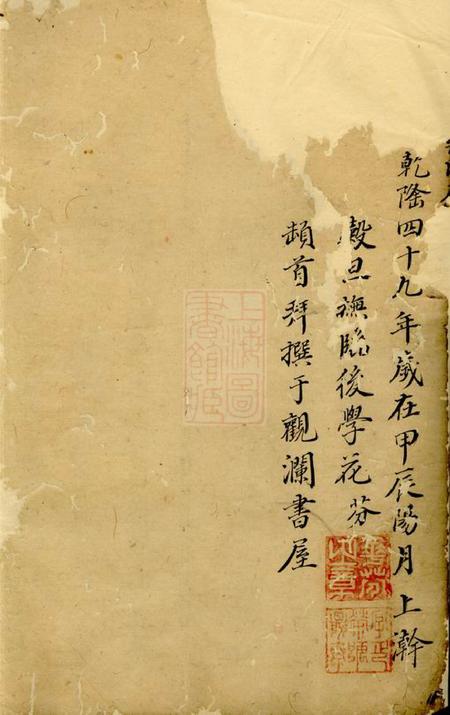 乾隆四十九年歲在甲辰陽月上澣
穀旦橅臨後學花芬
頓首拜撰于觀瀾書屋
上海圖
書館藏